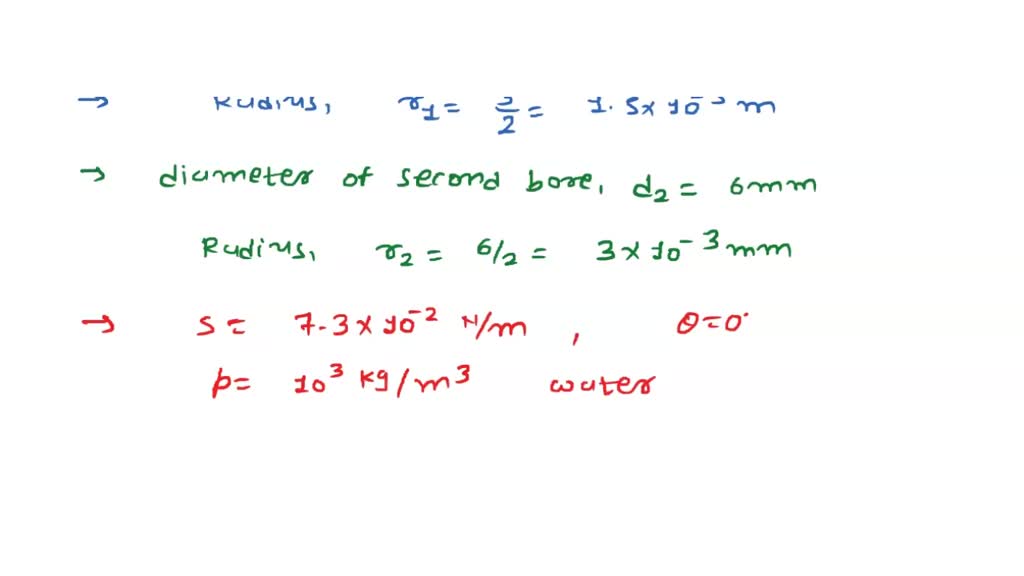 → Radius, r₁ = 3/2 = 1.5×10⁻³ m
→ diameter of second bore, d₂ = 6mm
Radius, r₂ = 6/2 = 3×10⁻³ mm
→ S = 7.3×10⁻² N/m, θ=0°
ρ= 10³ kg/m³ water